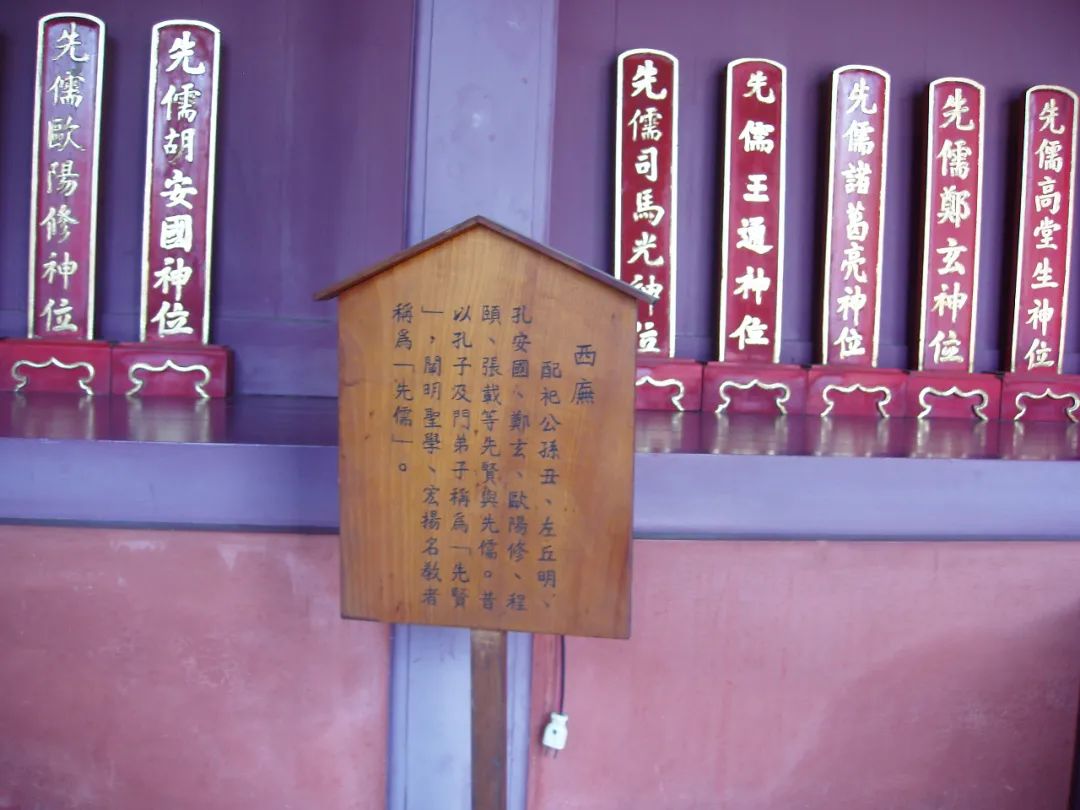 先儒高堂生神位
先儒鄭玄神位
先儒諸葛亮神位
先儒王通神位
先儒司馬光神位
西廡
配祀公孫丑、左丘明、
孔安國、鄭玄、歐陽修、程
頤、張載等先賢與先儒。昔
以孔子及門弟子稱爲「先賢
」，闡明聖學、宏揚名教者
稱爲「先儒」。
先儒胡安國神位
先儒歐陽修神位